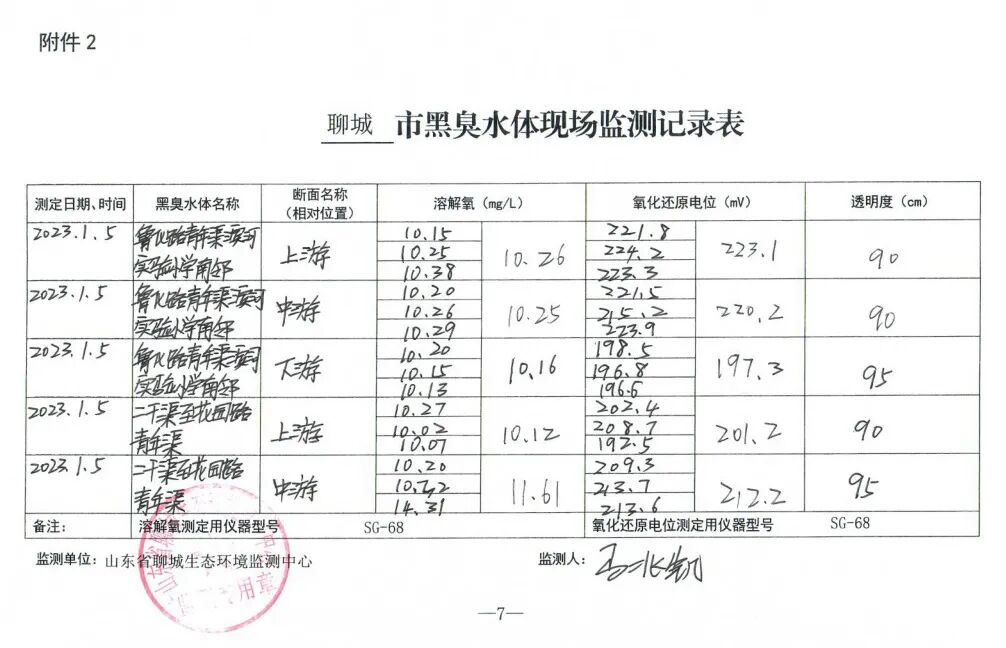 附件 2
聊城 市黑臭水体现场监测记录表
测定日期、时间 黑臭水体名称 断面名称（相对位置） 溶解氧（mg/L） 氧化还原电位（mV） 透明度（cm）
2023.1.5 鲁化路青年渠滨河 上游 10.15 10.26 221.8 223.1 90
实验小学南邻 10.25 224.2
10.38 223.3
2023.1.5 鲁化路青年渠滨河 中游 10.20 10.25 221.5 220.2 90
实验小学南邻 10.26 215.2
10.29 223.9
2023.1.5 鲁化路青年渠滨河 下游 10.20 10.16 198.5 197.3 95
实验小学南邻 10.15 196.8
10.13 196.6
2023.1.5 二干渠至花园路 上游 10.27 10.12 202.4 201.2 90
青年渠 10.02 208.7
10.07 192.5
2023.1.5 二干渠至花园路 中游 10.20 11.61 209.3 212.2 95
青年渠 213.7
14.31 213.6
备注： 溶解氧测定用仪器型号 SG-68 氧化还原电位测定用仪器型号 SG-68
监测单位：山东省聊城生态环境监测中心 监测人：
—7—